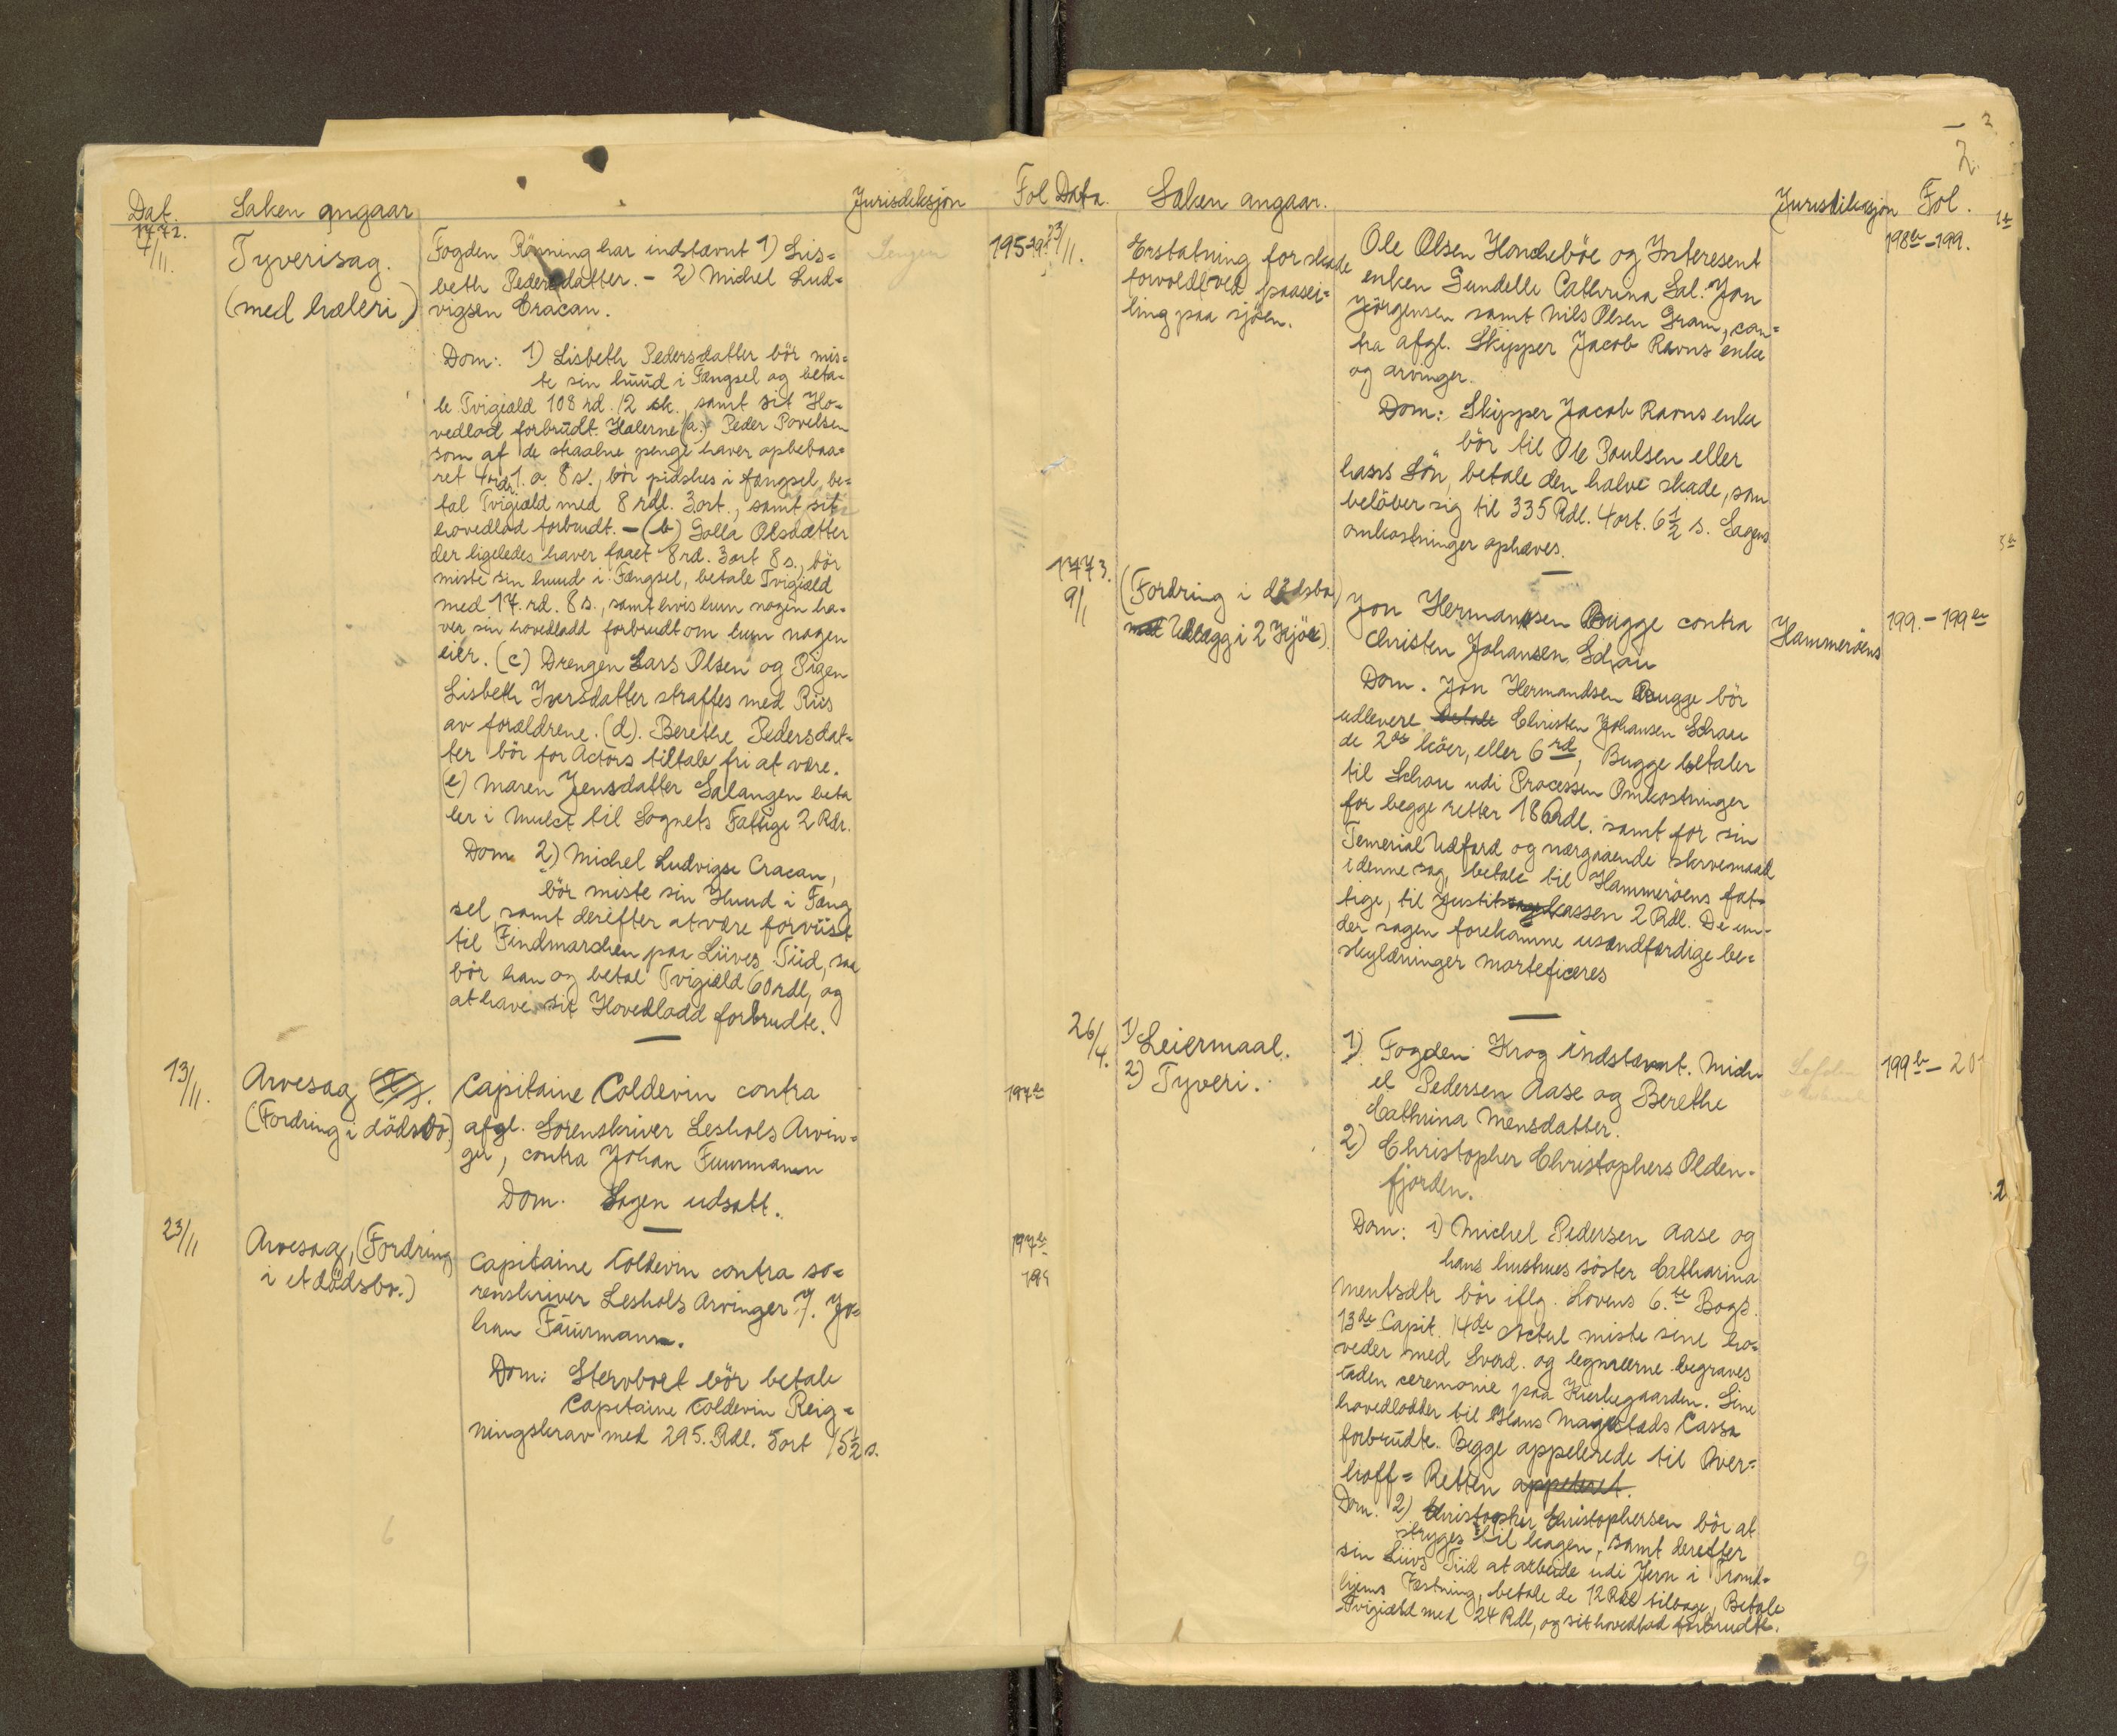 Dat. Saken angaar Jurisdeksjon Fol
1772.
7/11. Tyverisag.
(med hæleri)
Fogden Rönning har indstævnt 1) Lis=
beth Pedersdatter. – 2) Michel Lud=
vigsen Cracan.
Sengen
195
Dom: 1) Lisbeth Pedersdatter bör mis=
te sin huud i Fængsel og beta=
le Tvigiæld 108 rd. 12 sk. samt sit Ho=
vedlod forbrudt. Hælerne (a.) Peder Povelsen
som af de staalne penge haver opbebaa=
ret 4 rdr. 1. o. 8 s., bör pidskes i fængsel, be=
tal Tvigiæld med 8 rdl. 3 ort., samt sit
hovedlod forbrudt. – (b) Golla Olsdatter
der ligeledes haver faaet 8 rd. 3 ort 8 s., bör
miste sin huud i Fængsel, betale Tvigiæld
med 17. rd. 8 s., samt hvis hun nogen ha=
ver sin hovedlodd forbrudt om hun nogen
eier. (c) Drengen Lars Olsen og Pigen
Lisbeth Iversdatter straffes med Riis
av forældrene. (d). Berethe Pedersdat=
ter bör for Actors tiltale fri at være.
(e) Maren Jensdatter Salangen beta
ler i Mulct til Sognets Fattige 2 Rdr.
Dom 2) Michel Ludvigse Cracan,
bör miste sin Huud i Fæng
sel, samt derefter at være forviist
til Findmarcken paa Liives Tiid, saa
bör han og betal Tvigiæld 60 rdl, og
at have sit Hovedlodd forbrudte.
13/11. Arvesag
(Fordring i dödsbo.)
Capitaine Coldevin contra
afgl. Sorenskriver Leshols Arvin=
ger, contra Johan Fuurmann
Dom. Sagen udsatt.
197b
23/11 Arvesag, (Fordring
i et dödsbo.)
Capitaine Coldevin contra so=
renskriver Leshols Arvinger 7. Jo=
han Fuurmann.
197b
198
Dom: Stervboet bör betale
Capitaine Coldevin Reig=
ningskrav med 295. Rdl. 5 ort 15 1/2 s.
6
– 2
2.
Data. Saken angaar. Jurisdiksjon Fol.
23/11. Erstatning for skade
forvoldt ved paasei=
ling paa sjöen.
Ole Olsen Hondeböe og Interesent
enken Gundelle Cathrina Sal. Jon
Jörgensen samt Nils Olsen Gram, con=
tra afgl. Skipper Jacob Ravns enke
og arvinger.
198b – 199.
Dom: Skipper Jacob Ravns enke
bör til Ole Paulsen eller
hans Sön, betale den halve skade, som
belöber sig til 335 Rdl. 4 ort. 6 1/2 s. Sagens
omkostninger ophæves.
1773.
9/1 (Fordring i dödsbo)
med Udlægg i 2 Kjör).
Jon Hermansen Bugge contra
Christen Johansen Schau
Hammeröens
199. – 199b
Dom. Jon Hermandsen Bugge bör
udlevere betale Christen Johansen Schau
de 2de köer, eller 6 rd, Bugge betaler
til Schau udi Processen Omkostninger
for begge retter 16 Rdl. samt for sin
Temerial Udfærd og nærgaaende skrvemaad
i denne sag, betale til Hammeröens fat=
tige, til Justitskassen 2 Rdl. De un=
der sagen forekomne usandfærdige be=
skyldninger morteficeres
26/4. 1) Leiermaal.
2) Tyveri.
1) Fogden Krog indstævnt. Mich=
el Pedersen Aase og Berethe
Cathrina Mensdatter.
2) Christopher Christophers Olden=
fjorden.
199b – 20
Dom: 1) Michel Pedersen Aase og
hans hustrues söster Catharina
Mentsdtr bör iflg. Lovens 6.te Bogs
13de Capit. 14de Actul miste sine ho=
veder med Sværd. og legmerne begraves
uden ceremonie paa Kirkegaarden. Sine
hovedlodder til Hans Majestæds Cassa
forbrudte. Begge appelerede til Over=
hoff=Retten appeleret.
Dom. 2) Christopher Christophersen bör at
stryges til kagen, samt derefter
sin Liivs Tiid at arbeide udi Jern i Trond=
hjems Fæstning, betale de 12 Rdl tilbage, Betale
Tvigiæld med 24 Rdl, og sit hovedlod forbrudt.
9